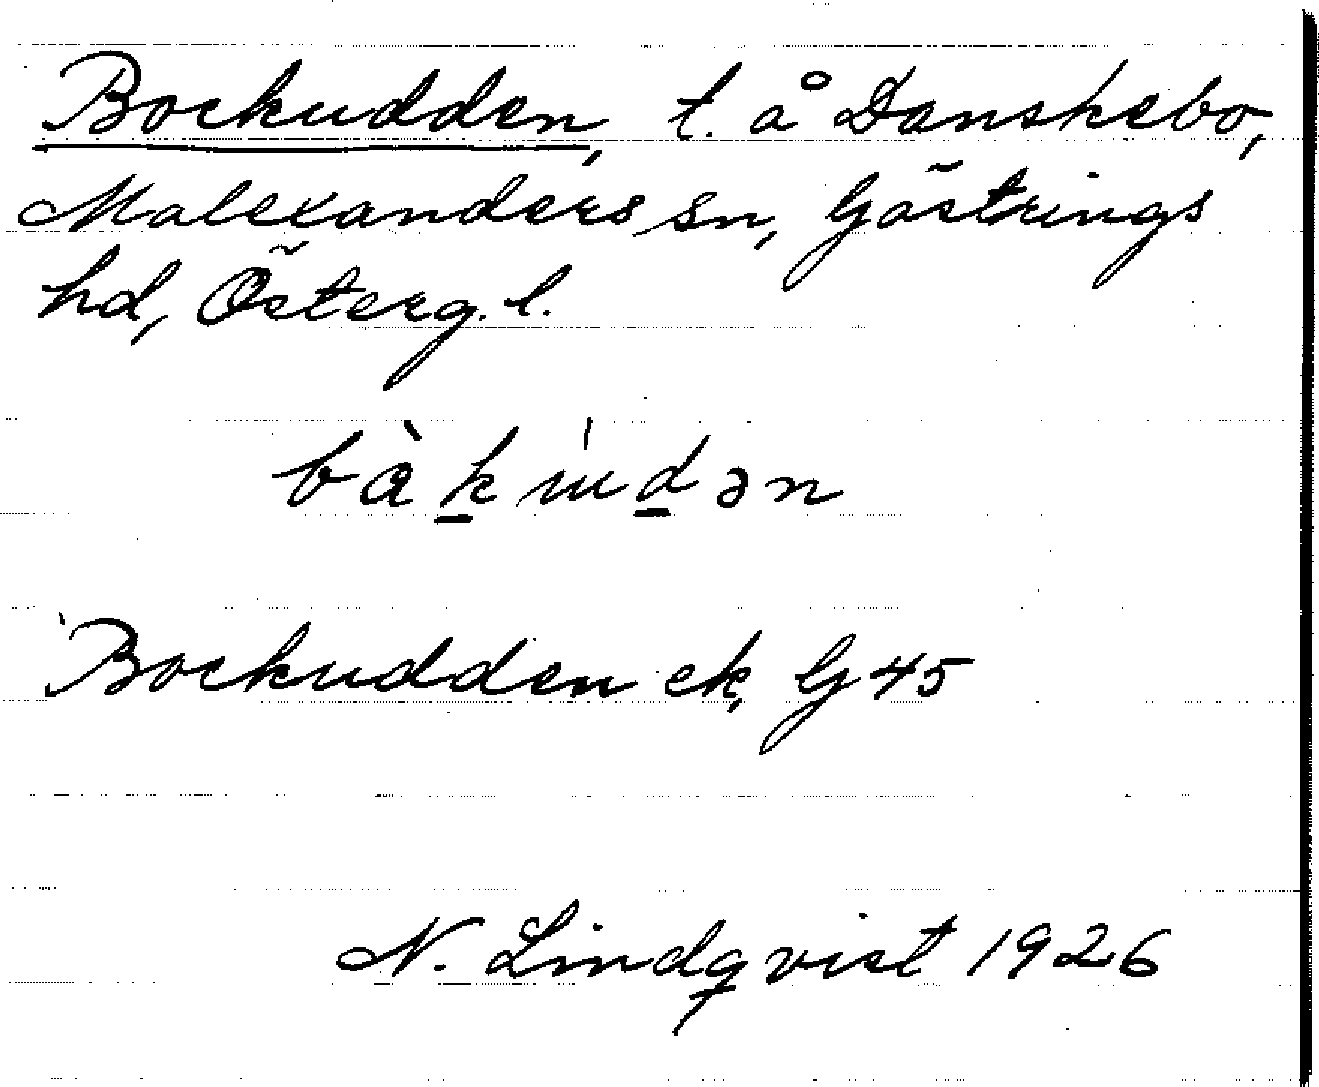 Bockudden, t. å Danskebo,
Malexanders sn, Göstrings
hd, Österg. l.
Bockudden ek, G 45
N. Lindqvist 1926